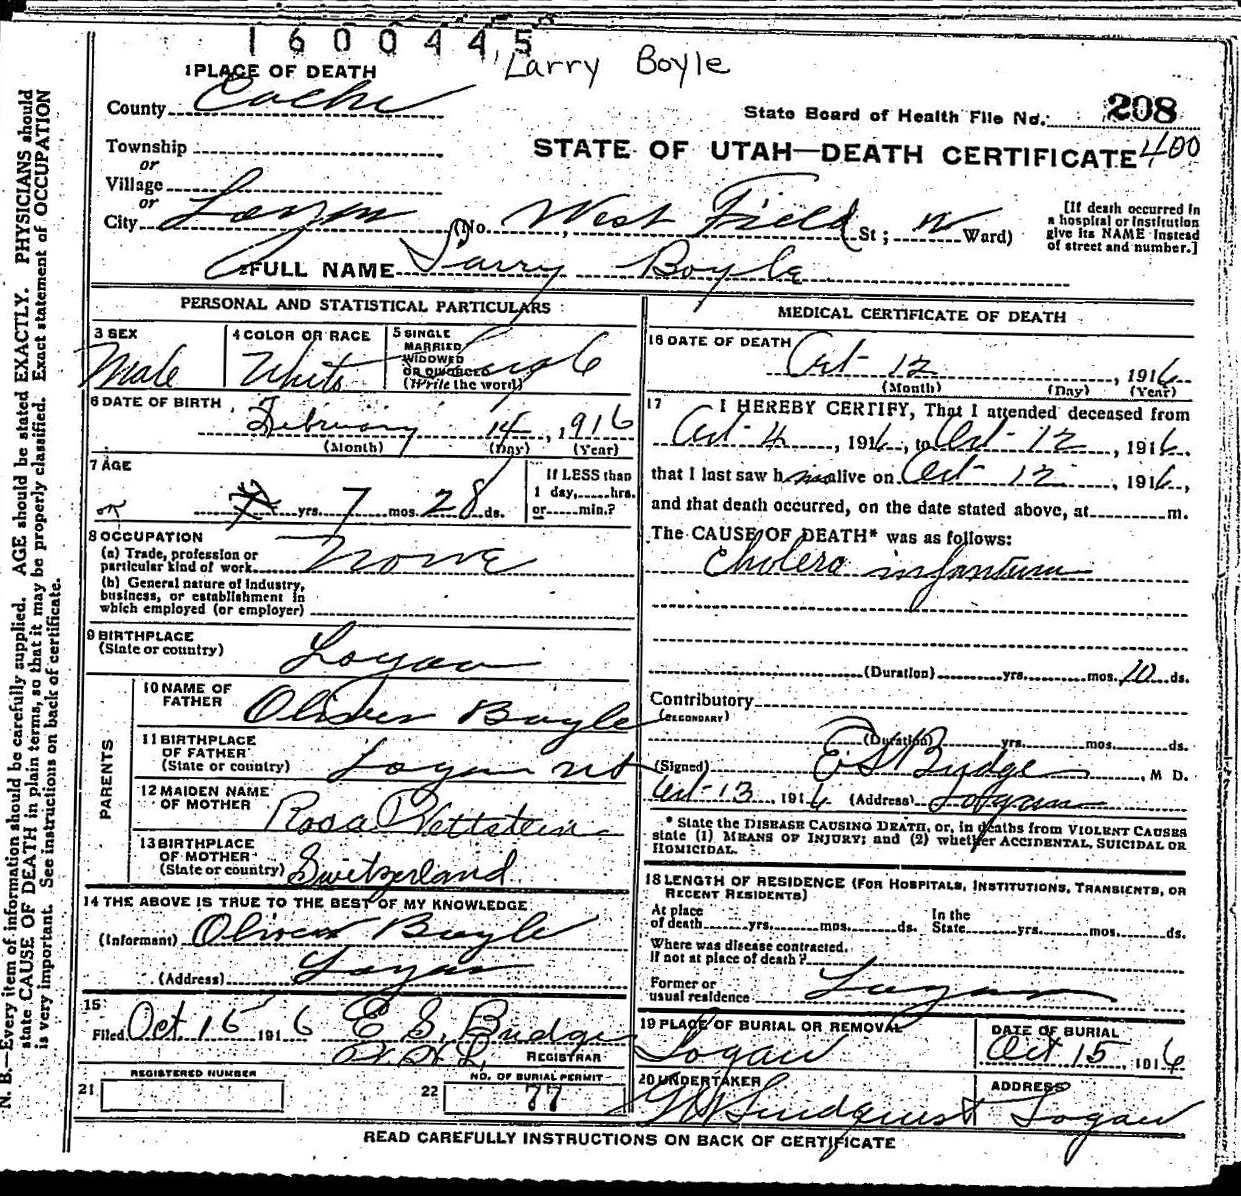 1600445
Larry Boyle
1 PLACE OF DEATH
County Cache
State Board of Health File No. 208
Township
STATE OF UTAH—DEATH CERTIFICATE 400
or
Village
or
City Logan (No. West Field St; W Ward)
[If death occurred in a hospital or institution give its NAME instead of street and number.]
2 FULL NAME Larry Boyle
PERSONAL AND STATISTICAL PARTICULARS
3 SEX Male
4 COLOR OR RACE White
5 SINGLE MARRIED WIDOWED OR DIVORCED (Write the word) Single
6 DATE OF BIRTH
February 14, 1916
(Month) (Day) (Year)
7 AGE
yrs. 7 mos. 28 ds.
If LESS than 1 day, hrs. or min.?
8 OCCUPATION
(a) Trade, profession or particular kind of work None
(b) General nature of industry, business, or establishment in which employed (or employer)
9 BIRTHPLACE (State or country) Logan
PARENTS
10 NAME OF FATHER Oliver Boyle
11 BIRTHPLACE OF FATHER (State or country) Logan Ut
12 MAIDEN NAME OF MOTHER Rosa Wettstein
13 BIRTHPLACE OF MOTHER (State or country) Switzerland
14 THE ABOVE IS TRUE TO THE BEST OF MY KNOWLEDGE
(Informant) Oliver Boyle
(Address) Logan
15
Filed Oct. 15 1916 E S. Budge
REGISTRAR
21 REGISTERED NUMBER
22 NO. OF BURIAL PERMIT 77
MEDICAL CERTIFICATE OF DEATH
16 DATE OF DEATH
Oct 12, 1916
(Month) (Day) (Year)
17 I HEREBY CERTIFY, That I attended deceased from
Oct-4, 1916, to Oct-12, 1916.
that I last saw him alive on Oct-12, 1916,
and that death occurred, on the date stated above, at m.
The CAUSE OF DEATH* was as follows:
Cholera infantum
(Duration) yrs. mos. 10 ds.
Contributory
(SECONDARY)
(Duration) yrs. mos. ds.
(Signed) E S Budge, M D.
Oct-13, 1916 (Address) Logan
* State the DISEASE CAUSING DEATH, or, in deaths from VIOLENT CAUSES
state (1) MEANS OF INJURY; and (2) whether ACCIDENTAL, SUICIDAL OR
HOMICIDAL.
18 LENGTH OF RESIDENCE (FOR HOSPITALS, INSTITUTIONS, TRANSIENTS, OR
RECENT RESIDENTS)
At place of death yrs. mos. ds. In the State yrs. mos. ds.
Where was disease contracted.
If not at place of death?
Former or usual residence Logan
19 PLACE OF BURIAL OR REMOVAL Logan
DATE OF BURIAL Oct 15, 1916
20 UNDERTAKER Lindquist
ADDRESS Logan
READ CAREFULLY INSTRUCTIONS ON BACK OF CERTIFICATE
N. B.—Every item of information should be carefully supplied. AGE should be stated EXACTLY. PHYSICIANS should
state CAUSE OF DEATH in plain terms, so that it may be properly classified. Exact statement of OCCUPATION
is very important. See instructions on back of certificate.